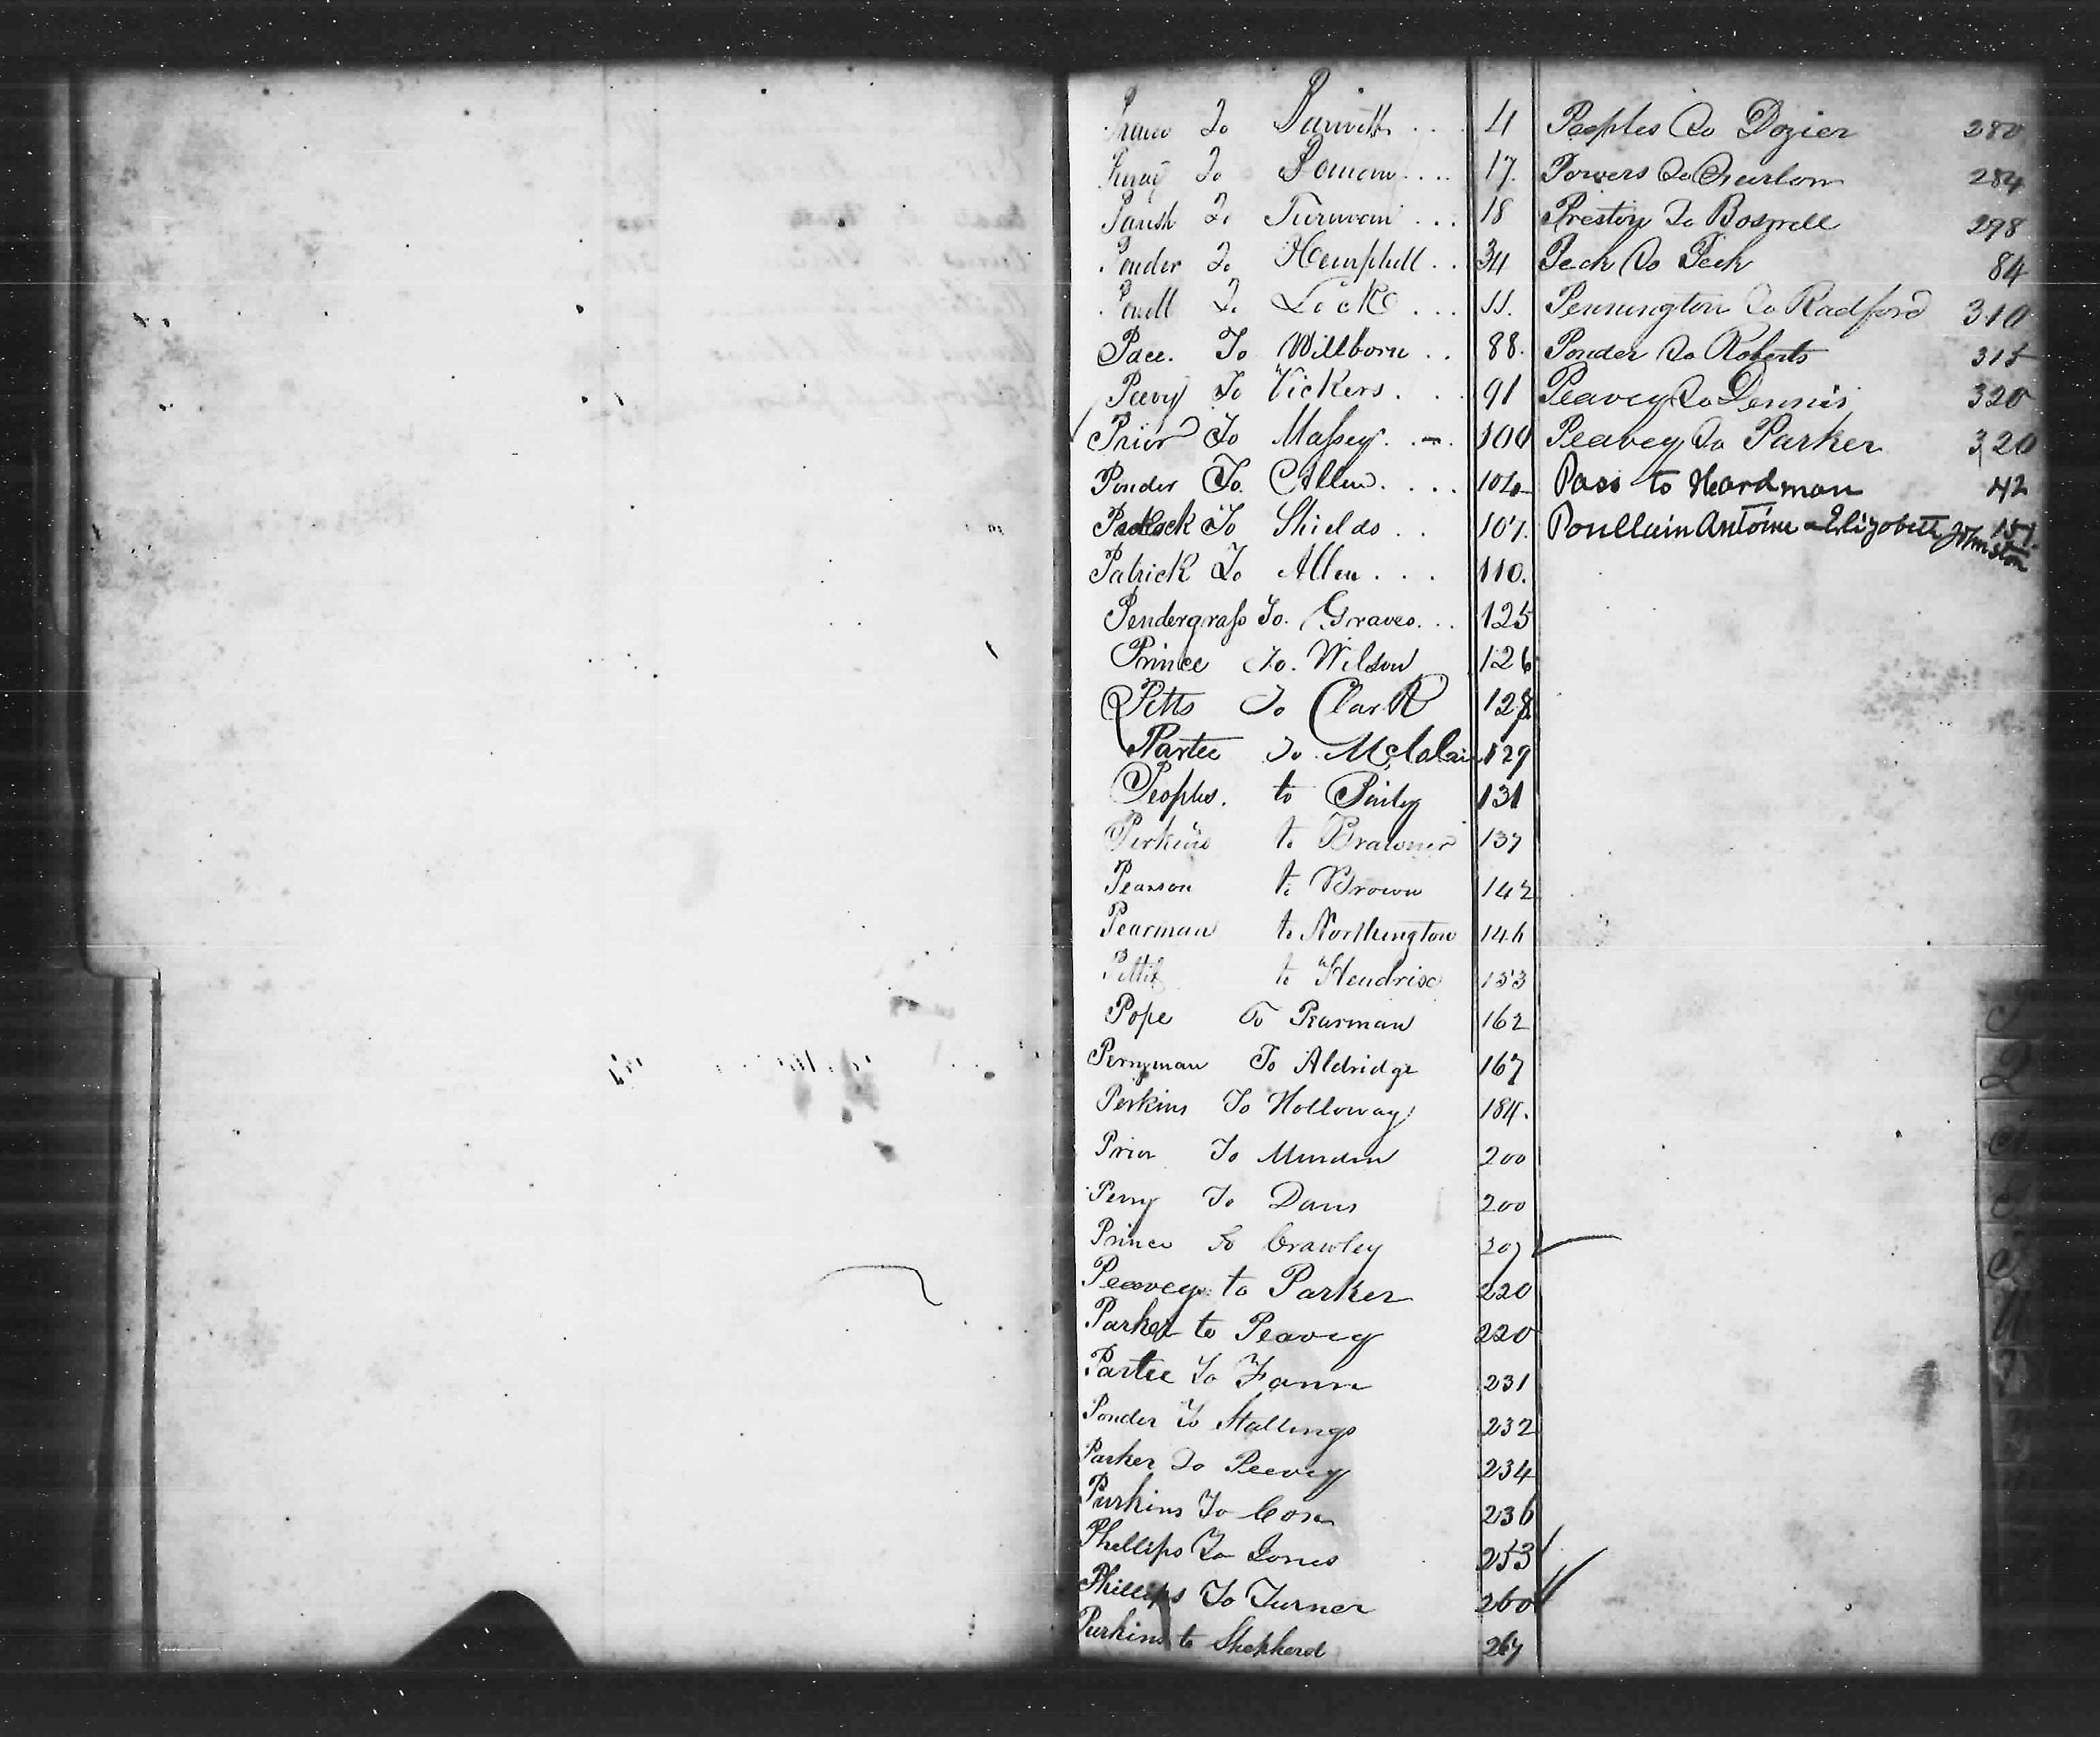 To 4
To 17.
Parish To 18
Ponder To Hemphill 34
Powell To Locke
Pace. To Willborn 88.
Peevy To Vickers 91
Prior To Massey 100
Ponder To Allen
Padlock To Shields 107.
Patrick To Allen 110.
Pendergrass To Graves 125
Prince To Wilson 126
Pitts To Clark 128
Partee To 129
Peoples. to 131
Perkins to Brawner 137
Pearson to Brown 142
Pearman to Northington 146
to Hendrix 153
Pope To Pearman 162
Perryman To Aldridge 167
Perkins To Holloway 184.
Prior To 200
Perry To Davis 200
Prince To Crawley 207
Peavey to Parker 220
Parker to Peavey 220
Partee To Fann 231
Ponder To Stallings 232
Parker To Peevey 234
Purkins To 236
Phellips To Jones 253
Phillips To Turner 260
Purkins to Shepherd 267
Peeples To Dozier 280
Powers To 284
Preston To Boswell 298
Peck To Peek 84
Pennington To Radford 310
Ponder To Roberts 315
Peavey To Dennis 320
Peavey To Parker 320
Pass to Hardman 42
Poullain Antoine Elizabeth Johnston 157